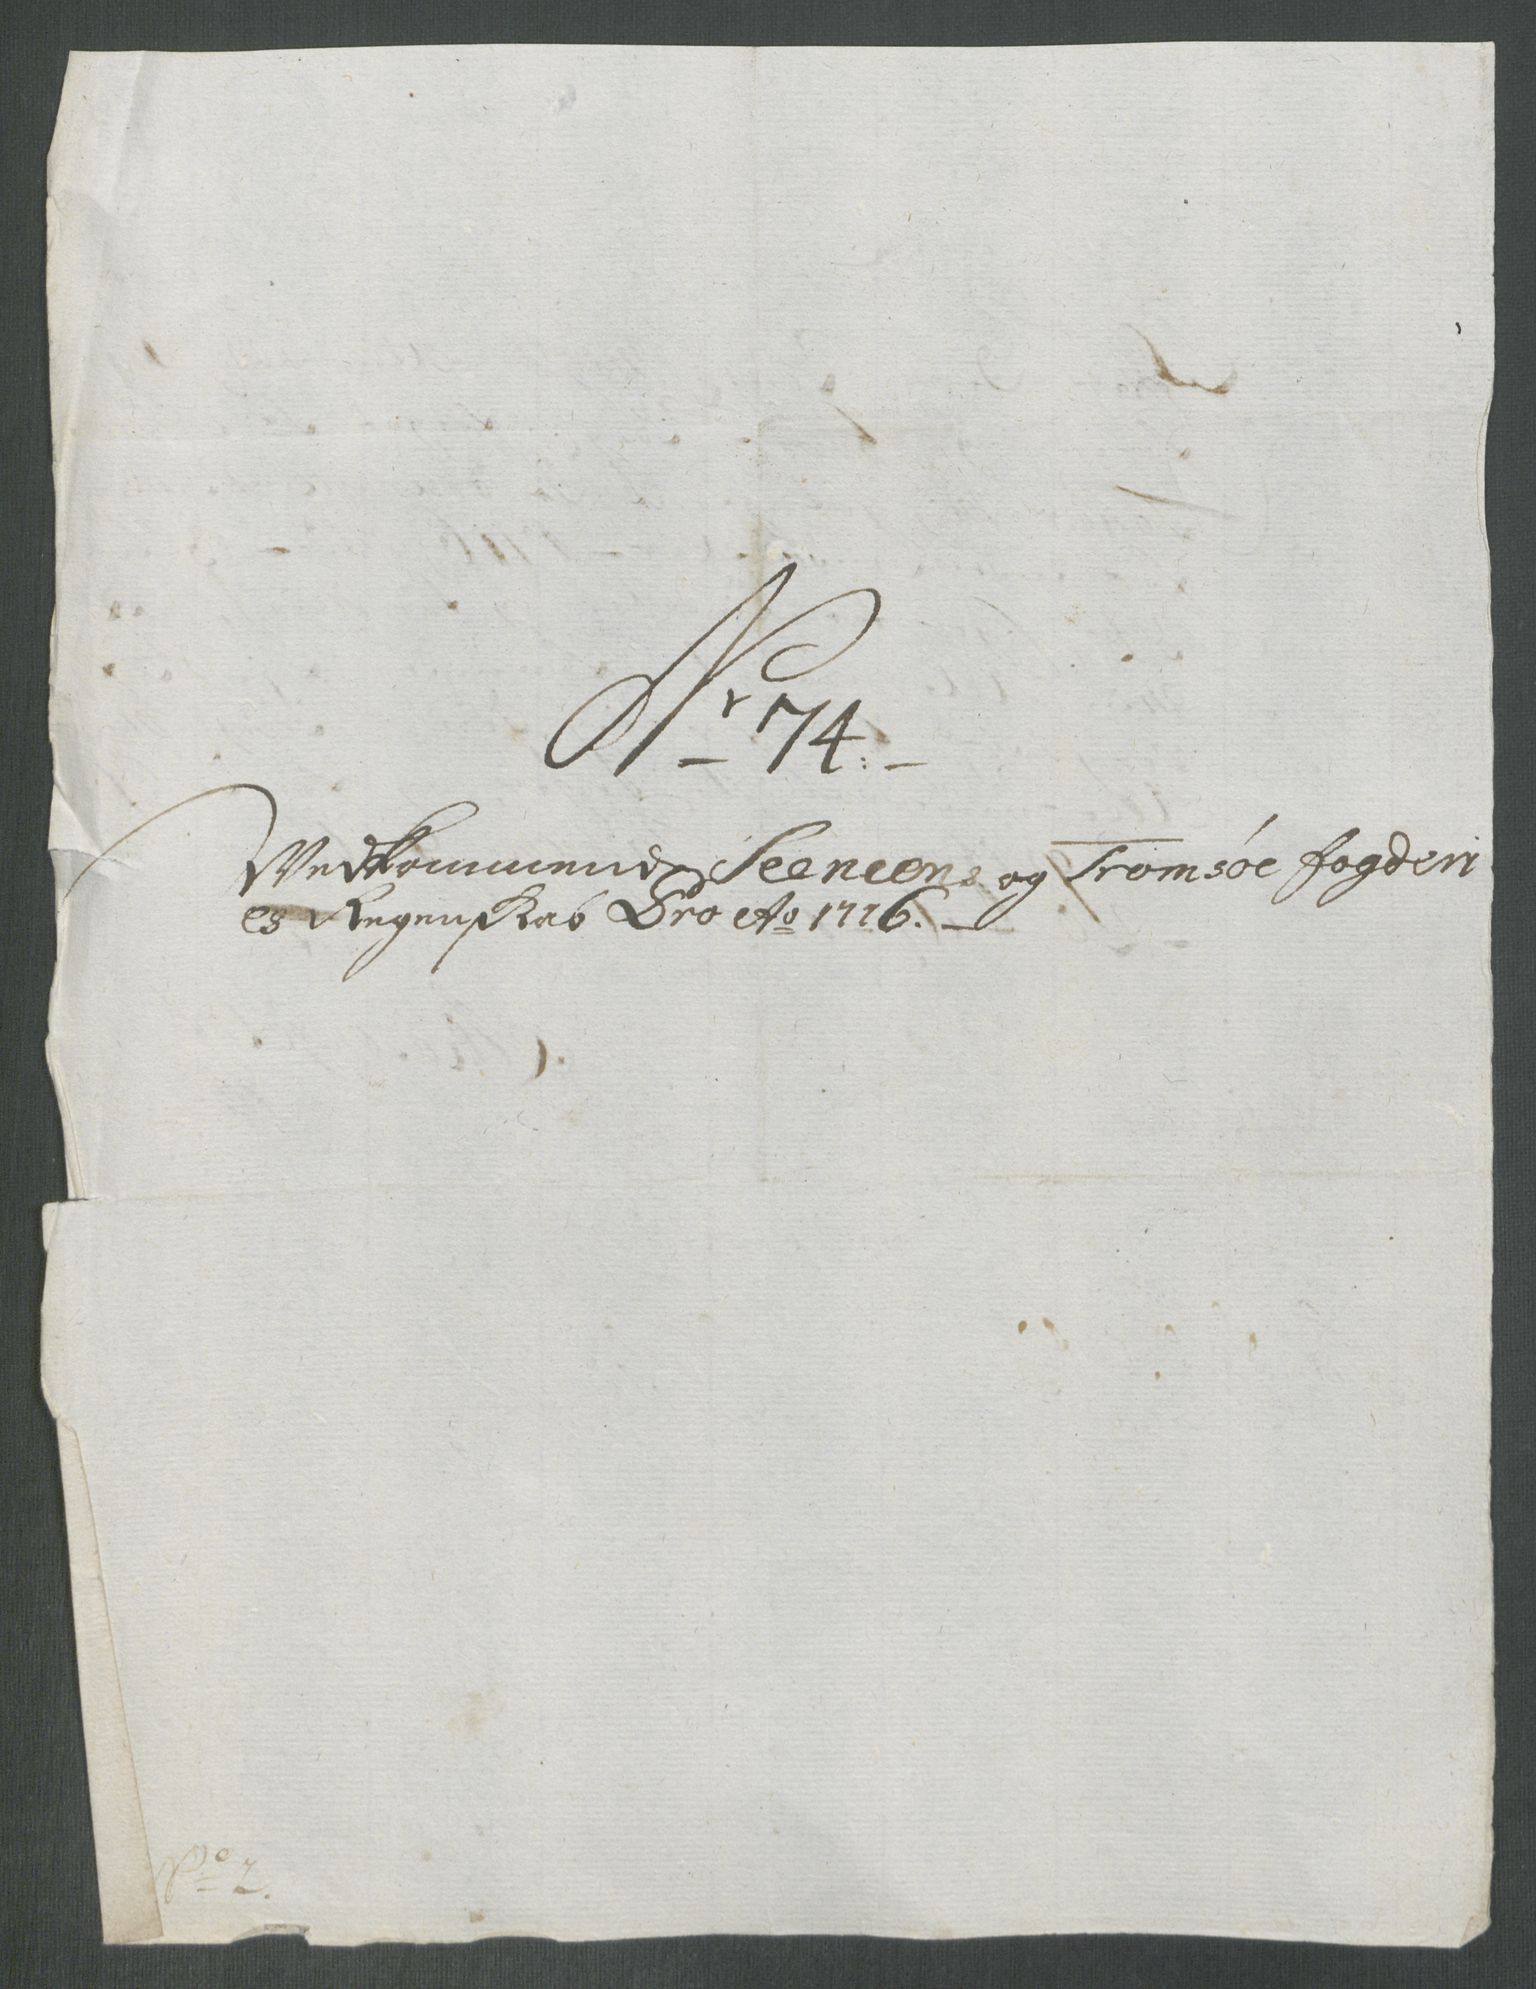 Nr 74.
Vedkommende Seeniens og Tromsöe fogderi
es Regenskab Pro Ao 1716.
No 2.